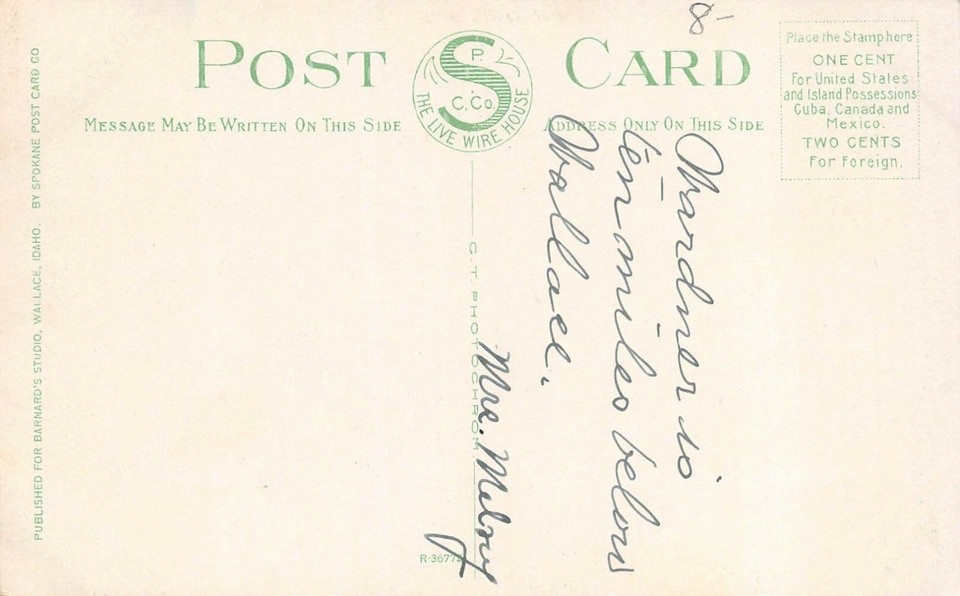 POST CARD
S
P.
C. Co.
THE LIVE WIRE HOUSE
MESSAGE MAY BE WRITTEN ON THIS SIDE
ADDRESS ONLY ON THIS SIDE
Place the Stamp here
ONE CENT
For United States
and Island Possessions
Cuba, Canada and
Mexico.
TWO CENTS
For Foreign.
8-
Wardner is
ten miles below
Wallace.
Mrs.
C. T. PHOTOCHROM
R-36772
PUBLISHED FOR BARNARD'S STUDIO, WALLACE, IDAHO. BY SPOKANE POST CARD CO